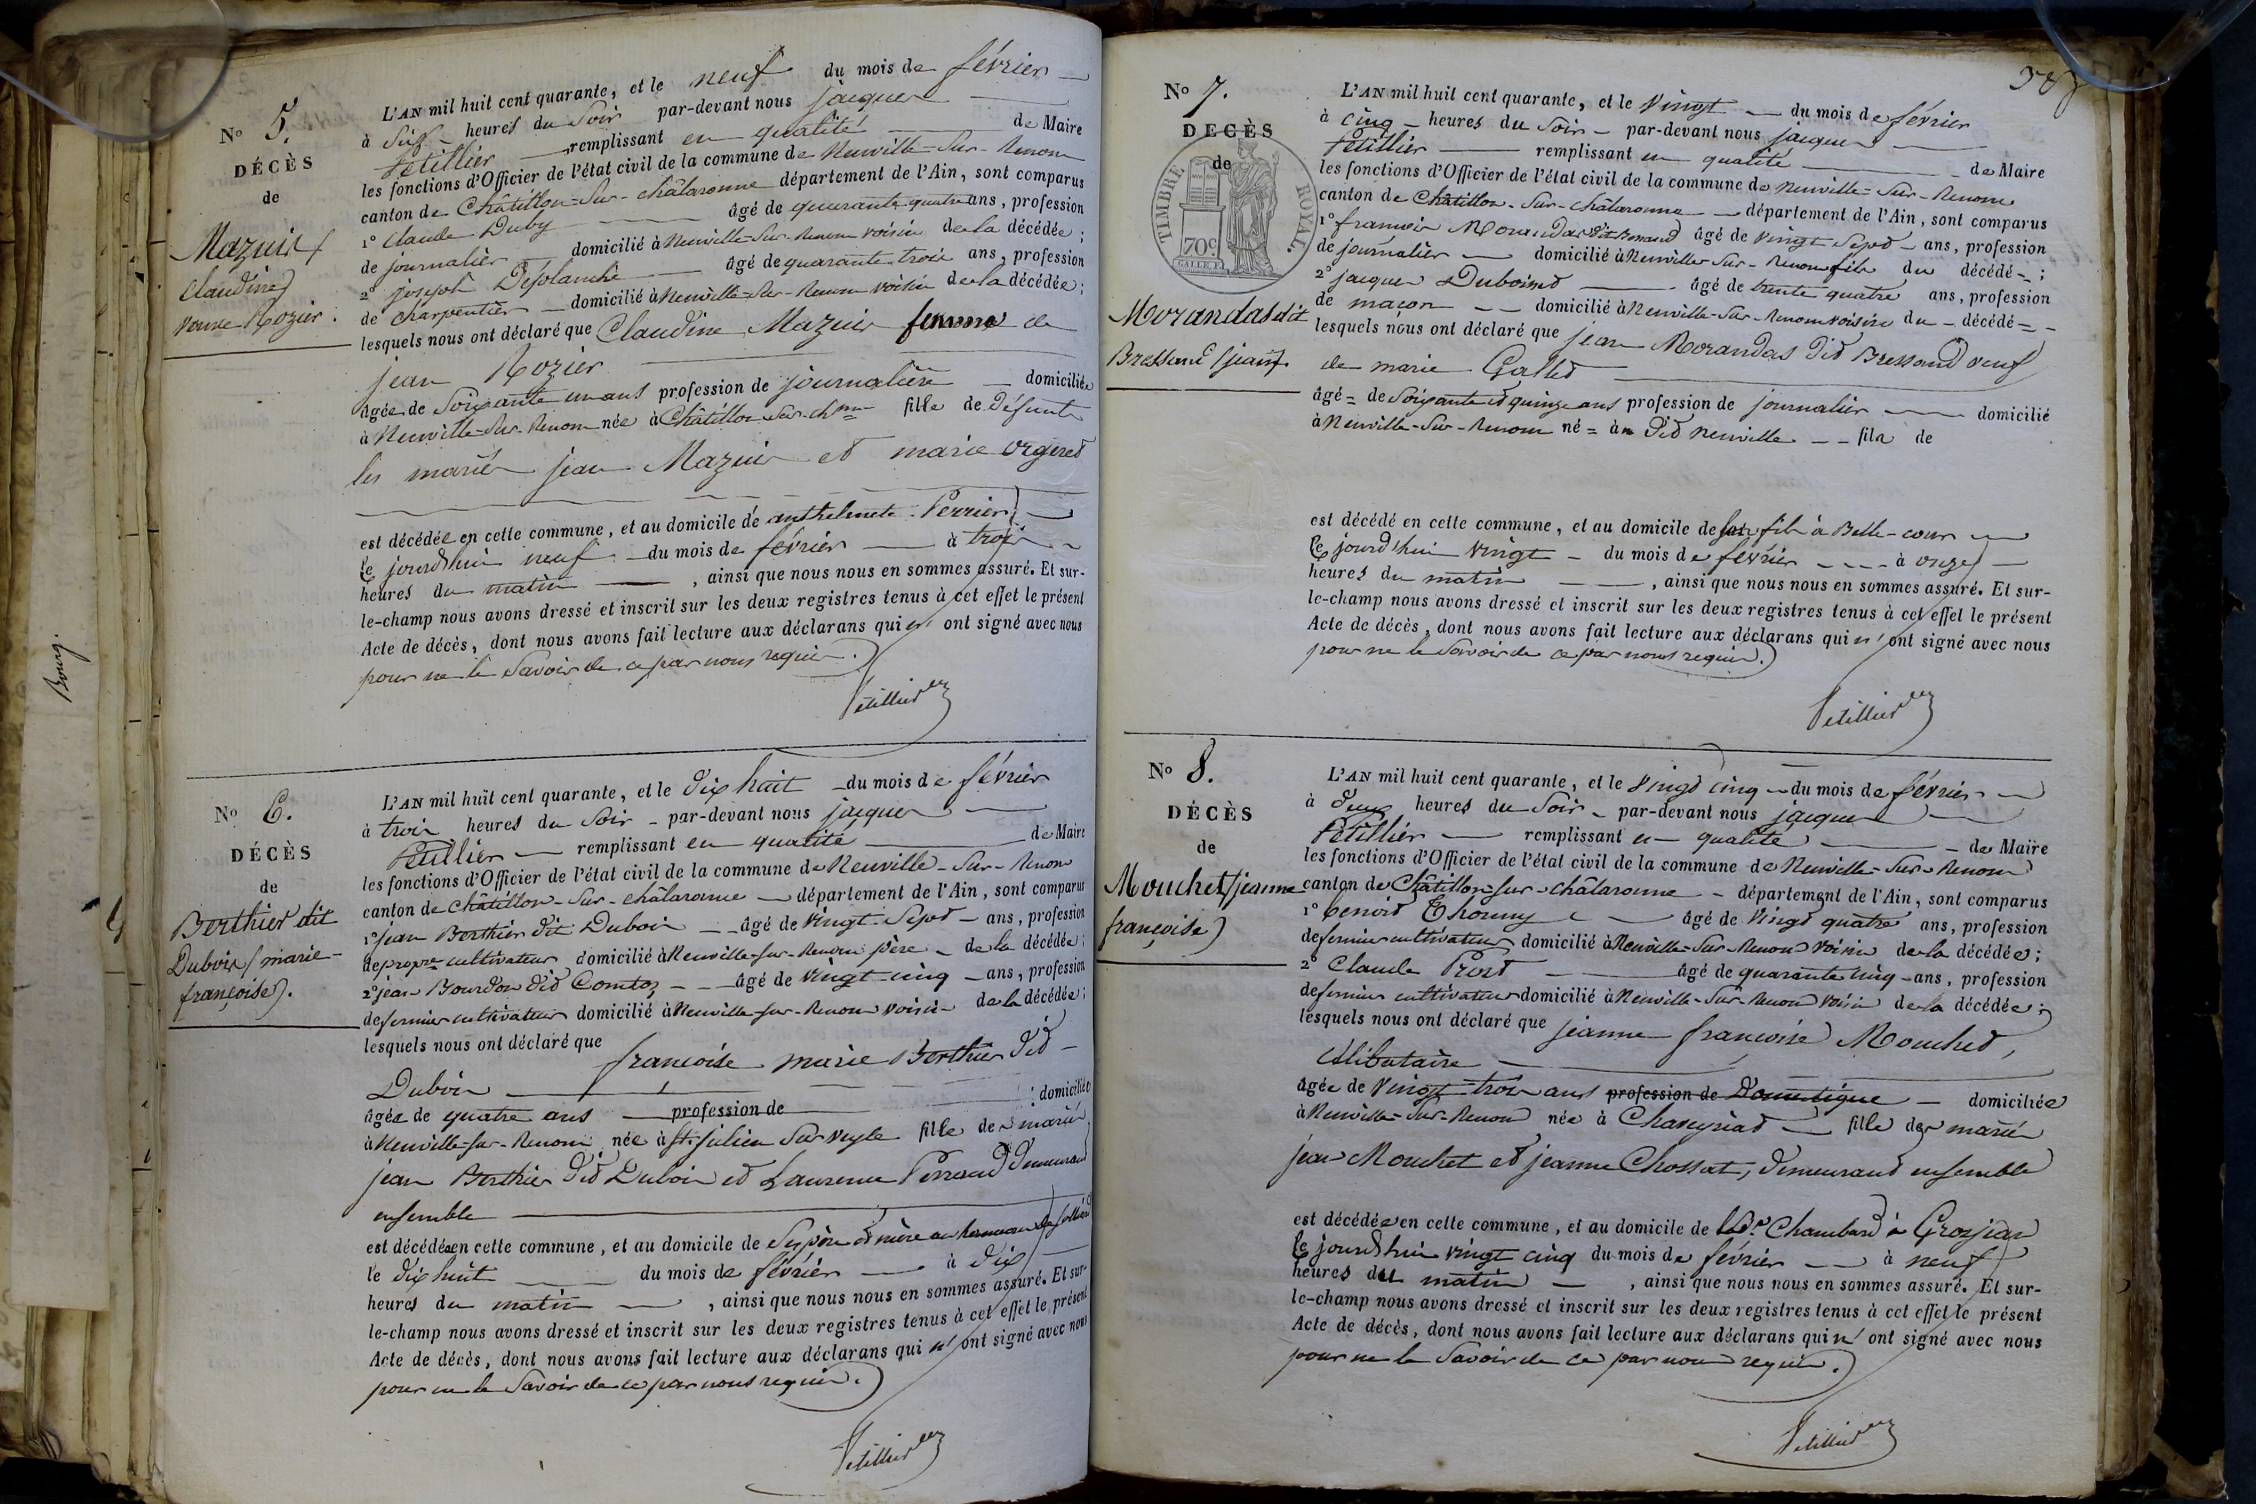 Bourg.
No 5.
DÉCÈS
de
Mazuir (
claudine)
veuve Rozier.
L'AN mil huit cent quarante, et le neuf du mois de février
à Six heures du Soir par-devant nous jacques
Petillier remplissant en qualité de Maire
les fonctions d'Officier de l'état civil de la commune de Neuville-Sur-Renom
canton de Châtillon-Sur-châlaronne département de l'Ain, sont comparus
1° Claude Duby âgé de quarante quatre ans, profession
de journalier domicilié à Neuville-Sur-Renom voisin de la décédée;
2° joseph Desplanche âgé de quarante trois ans, profession
de charpentier domicilié à Neuville-Sur-Renom voisin de la décédée;
lesquels nous ont déclaré que Claudine Mazuir femme de
jean Rozier
âgée de Soixante un ans profession de journalière domiciliée
à Neuville-Sur-Renom née à Châtillon-Sur-chne fille de défunts
les mariés jean Mazuir et marie orgeret
est décédée en cette commune, et au domicile de anthelmete Perrier
le jourdhui neuf du mois de février à trois
heures du matin, ainsi que nous nous en sommes assuré. Et sur-
le-champ nous avons dressé et inscrit sur les deux registres tenus à cet effet le présent
Acte de décès, dont nous avons fait lecture aux déclarans qui n' ont signé avec nous
pour ne le Savoir de ce par nous requis.
Petillier
No 6.
DÉCÈS
de
Berthier dit
Dubois (marie-
françoise).
L'AN mil huit cent quarante, et le dix huit du mois de février
à trois heures du Soir par-devant nous jacques
Petillier remplissant en qualité de Maire
les fonctions d'Officier de l'état civil de la commune de Neuville-Sur-Renom
canton de Châtillon-Sur-châlaronne département de l'Ain, sont comparus
1° jean Berthier dit Dubois âgé de vingt-Sept ans, profession
de propre cultivateur domicilié à Neuville-sur-Renom père de la décédée;
2° jean Bourdon dit Comtoz âgé de vingt cinq ans, profession
de fermier cultivateur domicilié à Neuville-sur-Renom voisin de la décédée;
lesquels nous ont déclaré que
françoise marie Berthier dit
Dubois
âgée de quatre ans profession de domiciliée
à Neuville-sur-Renom née à St. julien Sur veyle fille des mariés
jean Berthier dit Dubois et Laurence Perraud demeurant
ensemble
est décédée en cette commune, et au domicile de Ses père et mère au hameau
le dix huit du mois de février à dix
heures du matin, ainsi que nous nous en sommes assuré. Et sur-
le-champ nous avons dressé et inscrit sur les deux registres tenus à cet effet le présent
Acte de décès, dont nous avons fait lecture aux déclarans qui n' ont signé avec nous
pour ne le Savoir de ce par nous requis.
Petillier
No 7.
DÉCÈS
de
TIMBRE ROYAL.
70c
Morandas dit
Bressand (jean)
L'AN mil huit cent quarante, et le vingt du mois de février
à cinq heures du Soir par-devant nous jacques
Petillier remplissant en qualité de Maire
les fonctions d'Officier de l'état civil de la commune de Neuville-Sur-Renom
canton de Châtillon-Sur-châlaronne département de l'Ain, sont comparus
1° françois Morandas dit Bressand âgé de vingt Sept ans, profession
de journalier domicilié à Neuville-Sur-Renom fils du décédé;
2° jacques Duboined âgé de trente quatre ans, profession
de maçon domicilié à Neuville-Sur-Renom voisin du décédé
lesquels nous ont déclaré que jean Morandas dit Bressand veuf
de marie Gallet
âgé de Soixante et quinze ans profession de journalier domicilié
à Neuville-Sur-Renom né à dit Neuville fils de
est décédé en cette commune, et au domicile de son fils à Belle-cour
le jourd'hui vingt du mois de février à onze
heures du matin, ainsi que nous nous en sommes assuré. Et sur-
le-champ nous avons dressé et inscrit sur les deux registres tenus à cet effet le présent
Acte de décès, dont nous avons fait lecture aux déclarans qui n' ont signé avec nous
pour ne le Savoir de ce par nous requis.
Petillier
No 8.
DÉCÈS
de
Mouchet (jeanne
françoise)
L'AN mil huit cent quarante, et le vingt cinq du mois de février
à deux heures du Soir par-devant nous jacques
Petillier remplissant en qualité de Maire
les fonctions d'Officier de l'état civil de la commune de Neuville-Sur-Renom
canton de Châtillon-sur-châlaronne département de l'Ain, sont comparus
1° benoit Thommy âgé de vingt quatre ans, profession
de fermier cultivateur domicilié à Neuville-Sur-Renom voisin de la décédée;
2° Claude Prost âgé de quarante cinq ans, profession
de fermier cultivateur domicilié à Neuville-Sur-Renom voisin de la décédée;
lesquels nous ont déclaré que jeanne françoise Mouchet,
célibataire
âgée de vingt-trois ans profession de Domestique domiciliée
à Neuville-Sur-Renom née à Chaveyriat fille des mariés
jean Mouchet et jeanne Chossat, demeurant ensemble
est décédée en cette commune, et au domicile de Chambard à Grosjean
le jourdhui vingt cinq du mois de février à neuf
heures du matin, ainsi que nous nous en sommes assuré. Et sur-
le-champ nous avons dressé et inscrit sur les deux registres tenus à cet effet le présent
Acte de décès, dont nous avons fait lecture aux déclarans qui n' ont signé avec nous
pour ne le Savoir de ce par nous requis.
Petillier